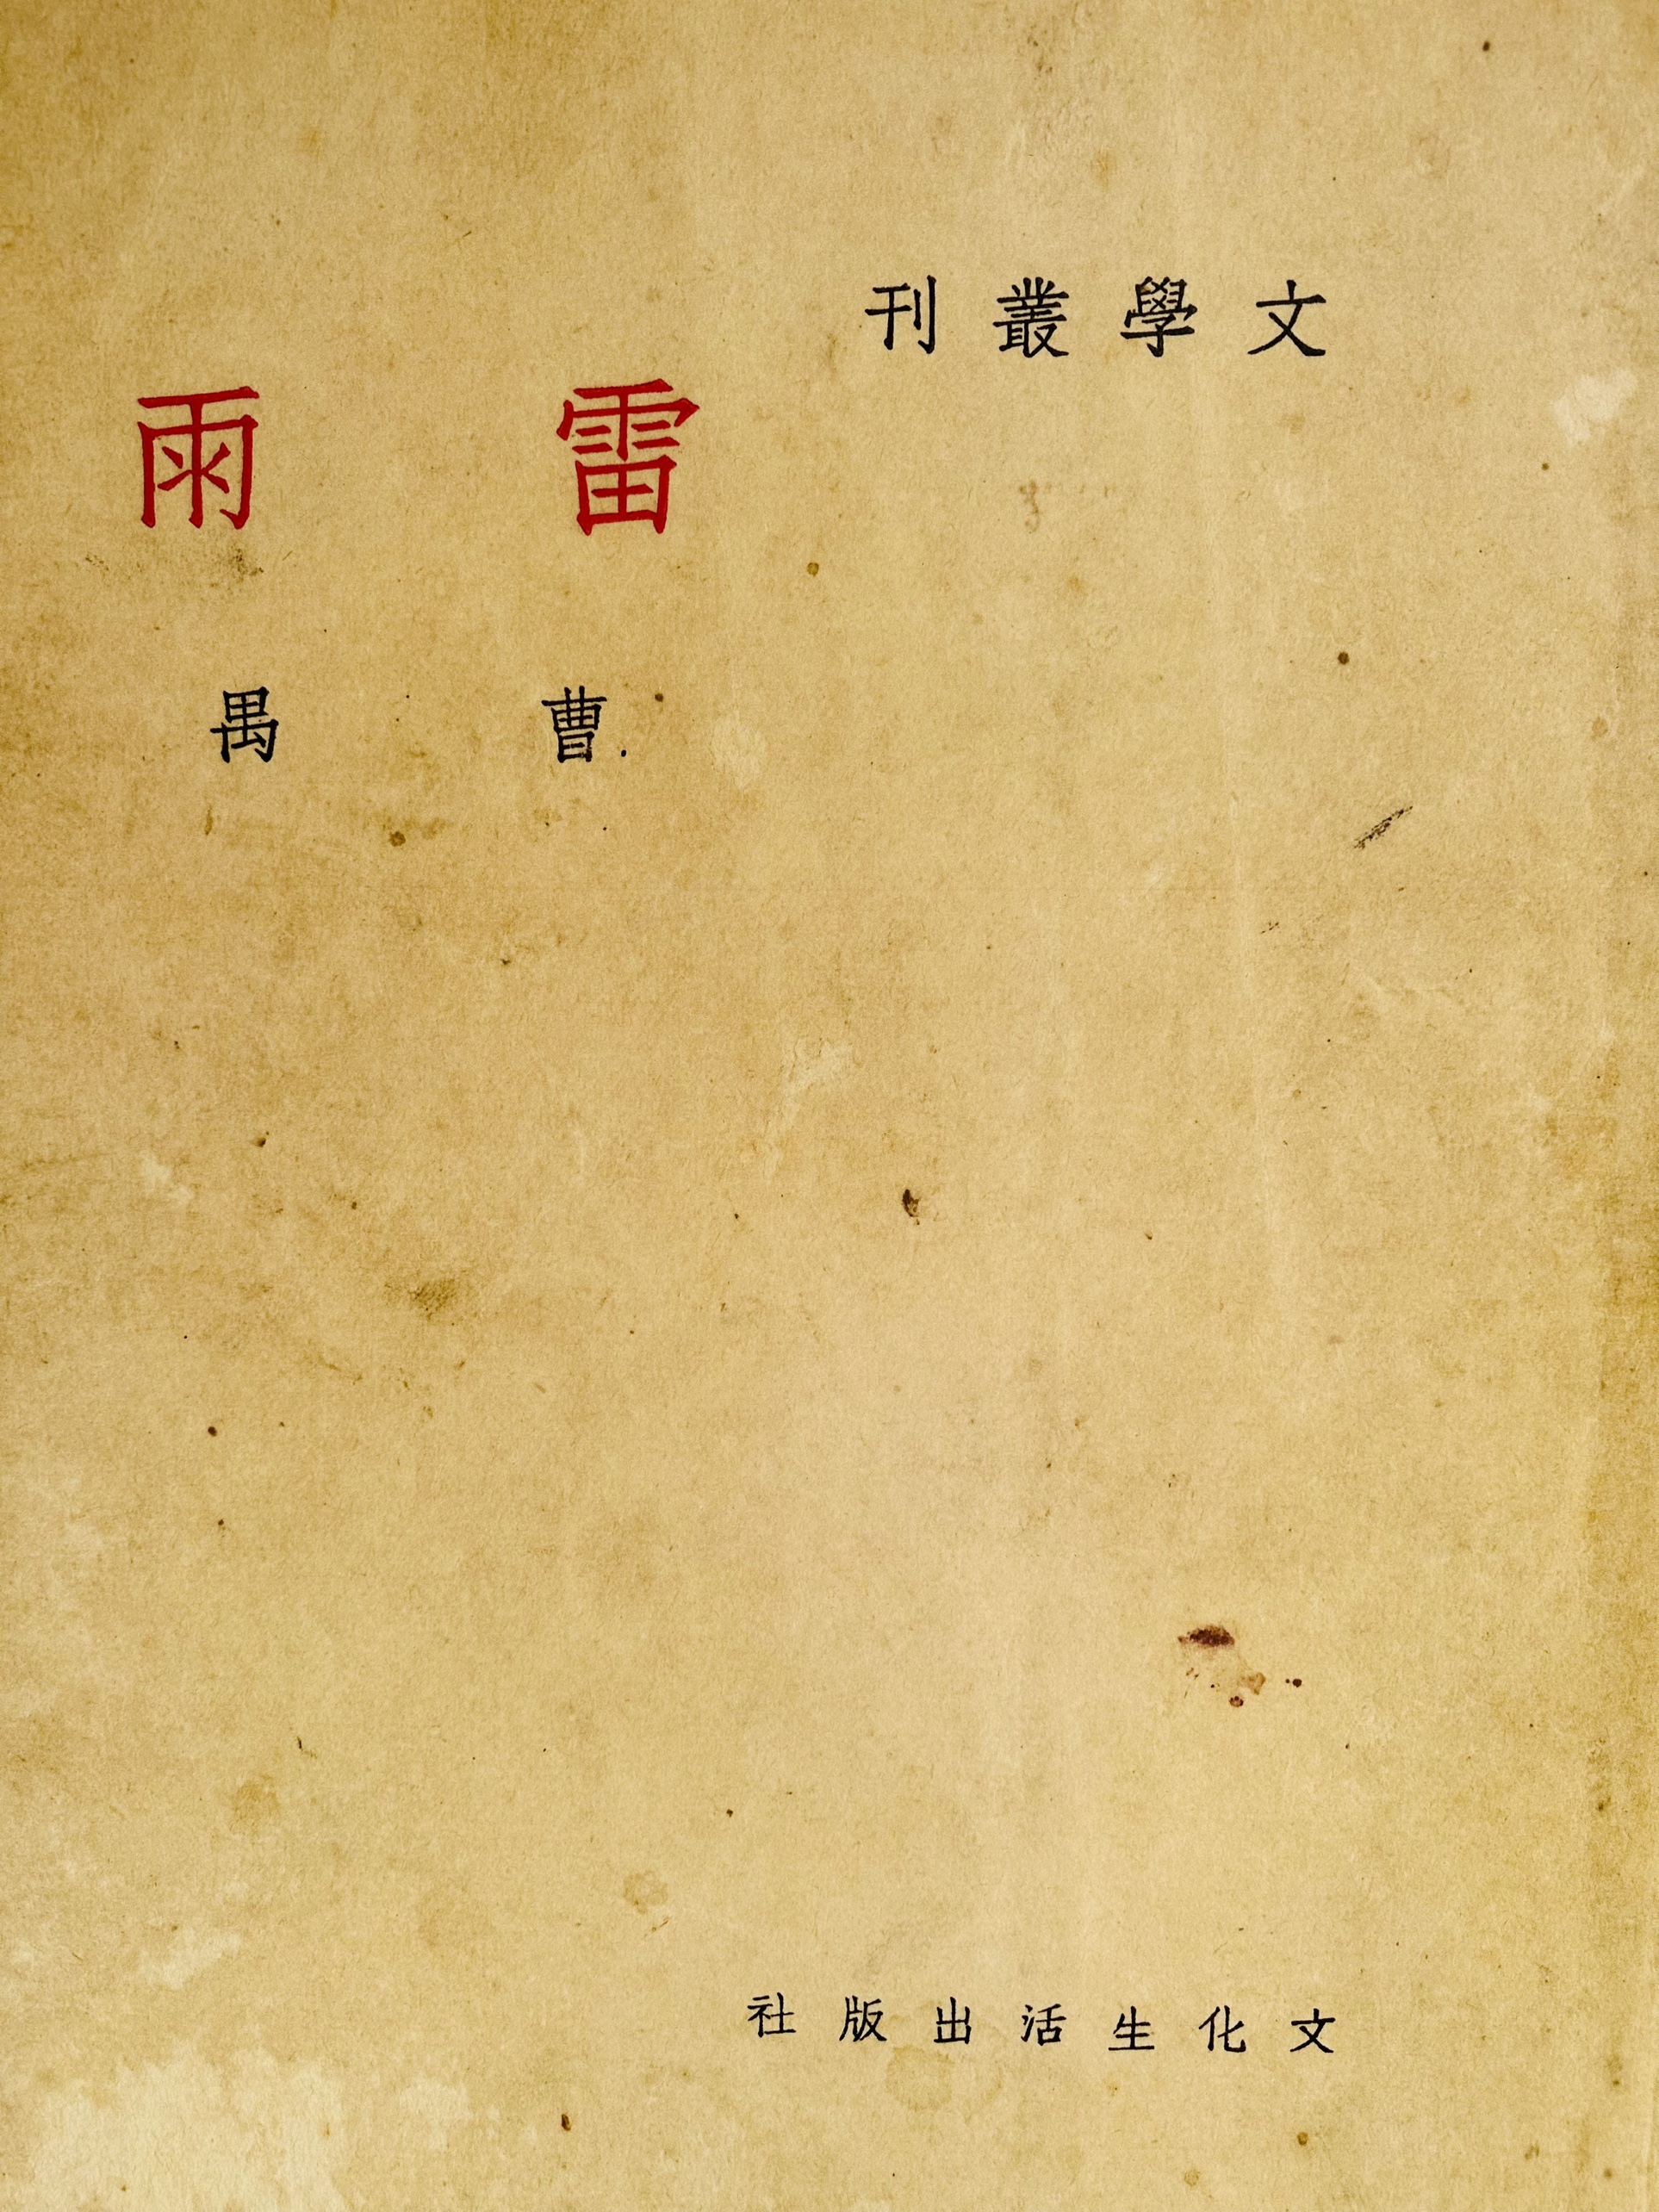 文學叢刊
雷雨
曹禺
文化生活出版社